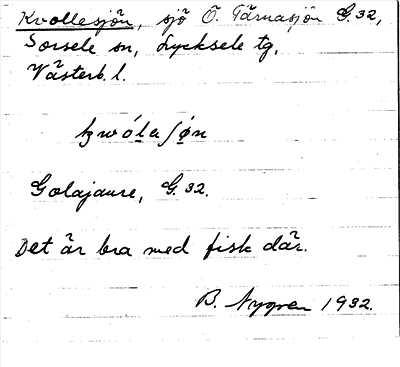 Kvollesjön, sjö Ö. Tärnasjön G. 32,
Sorsele sn, Lycksele tg,
Västerb. l.
kwólesǿn
Golajaure, G. 32.
Det är bra med fisk där.
B. Nygren 1932.